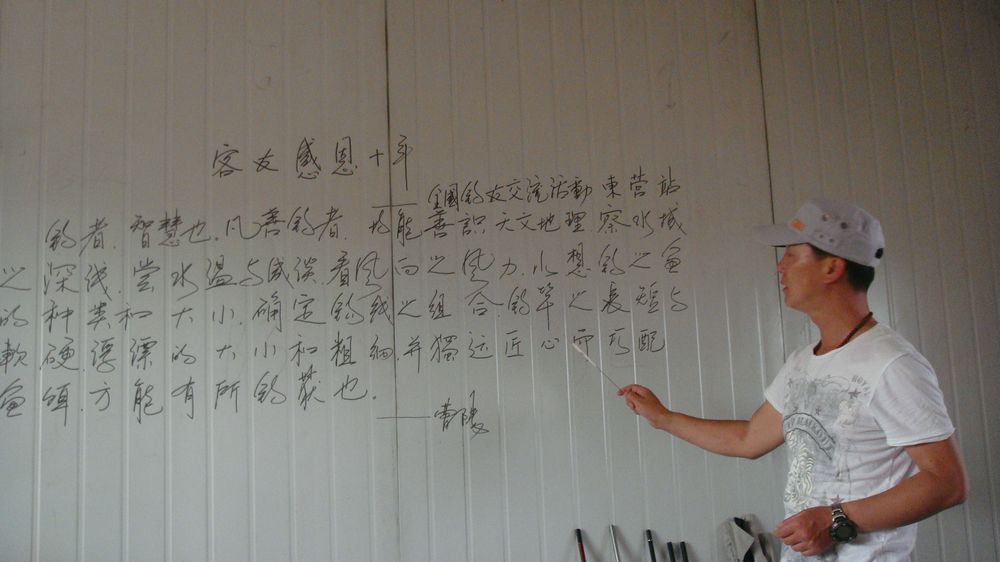 客友感恩十年
——全國钓友交流活動東营站
钓者.智慧也.凡善钓者.均能善識天文地理.察水域
之深浅.尝水温与咸淡.看风向之风力.水想钓之鱼
的种类和大小.确定钓线之组合.钓竿之長短与
軟硬.浮漂的大小和粗細.并獨运匠心而巧配
鱼饵.方能有所钓获也.
——曹